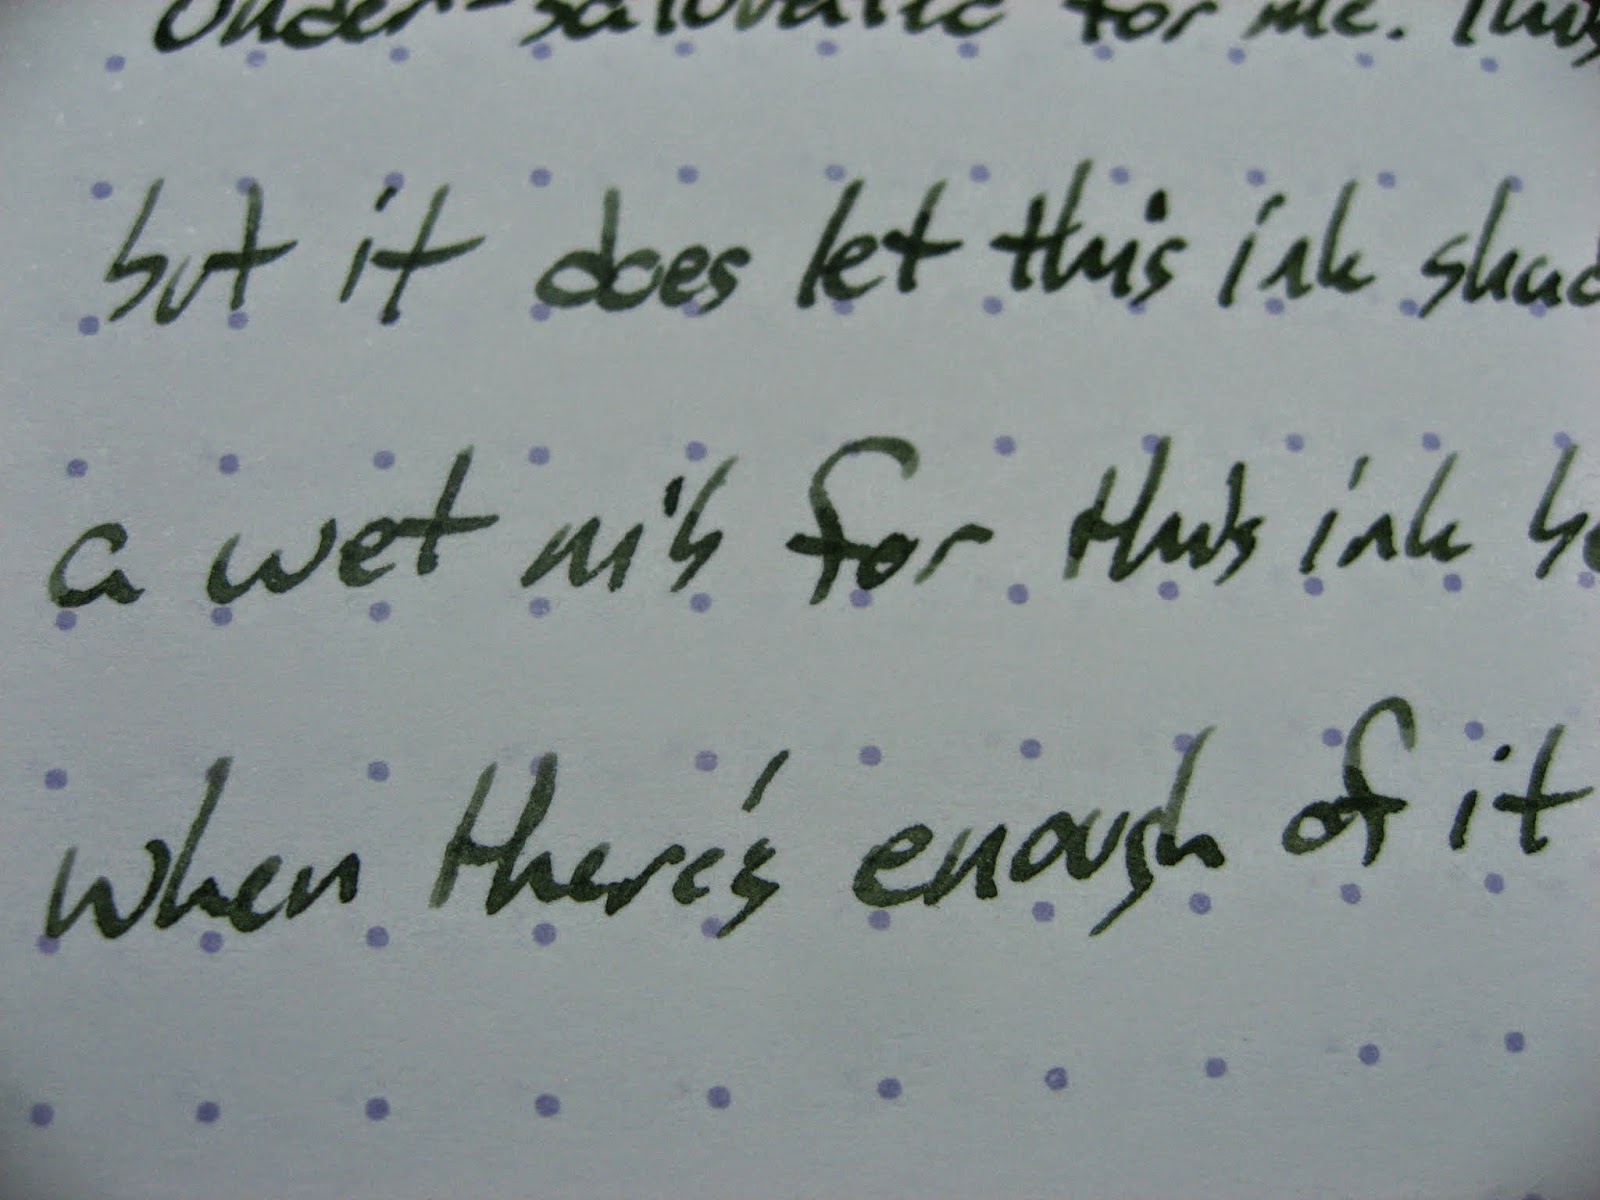 under-saturated for me. This
but it does let this ink shad
a wet nib for this ink be
when there's enough of it